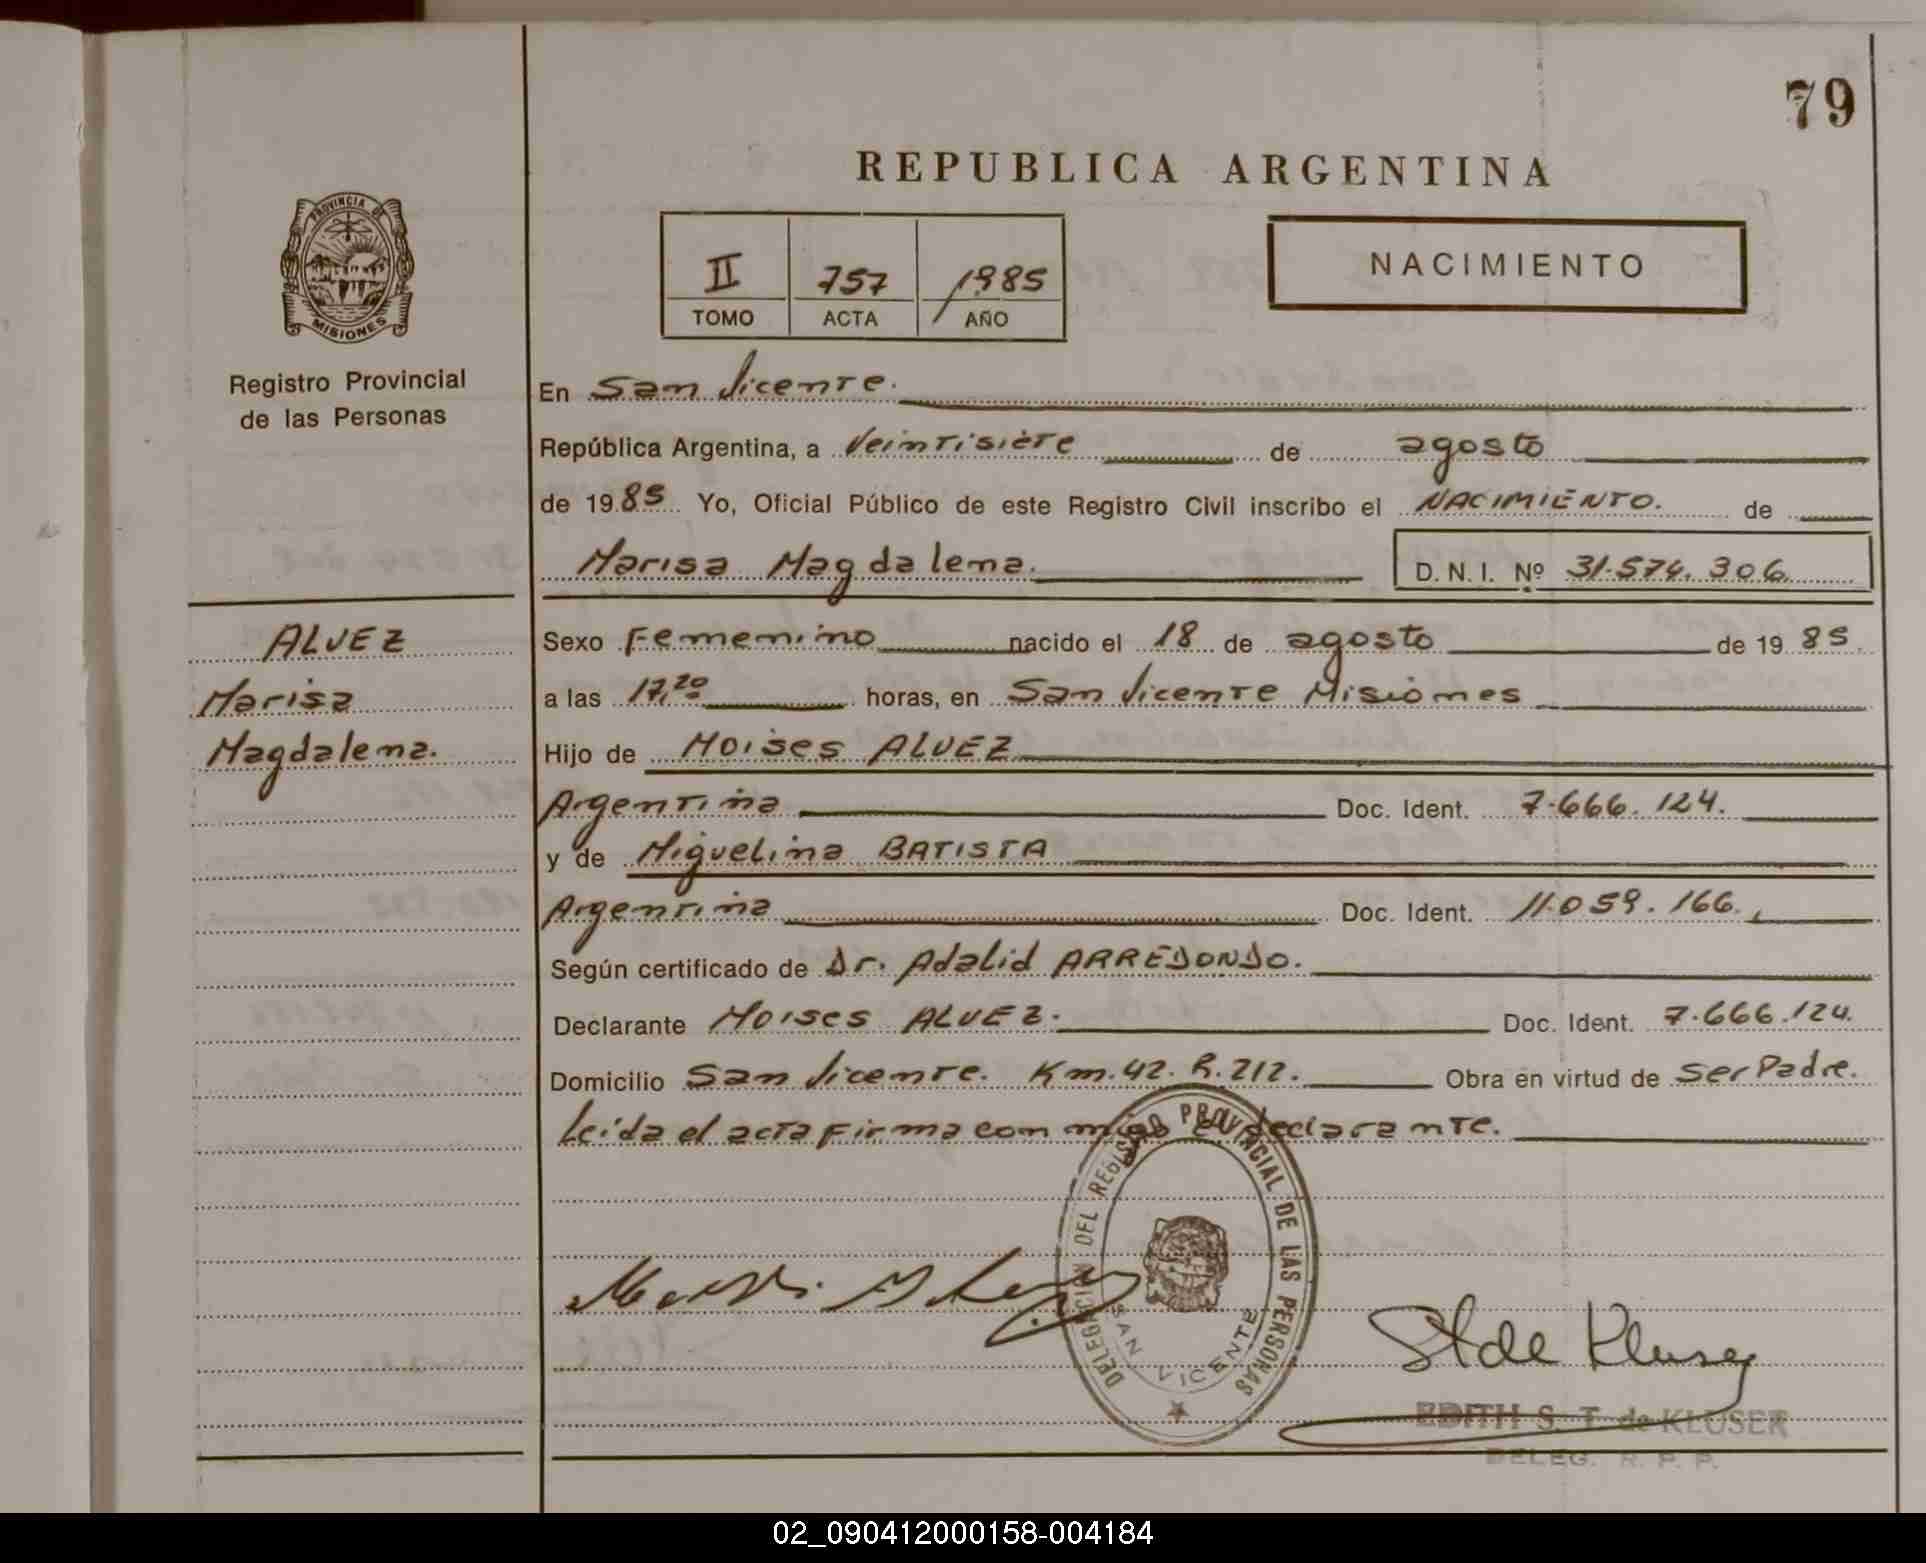 79
REPUBLICA ARGENTINA
PROVINCIA DE
MISIONES
Registro Provincial
de las Personas
II 757 1985
TOMO ACTA AÑO
NACIMIENTO
En San Vicente.
República Argentina, a Veintisiete de agosto
de 1985 Yo, Oficial Público de este Registro Civil inscribo el NACIMIENTO. de
Marisa Magdalena. D. N. I. Nº 31.574.306
ALVEZ
Marisa
Magdalena.
Sexo Femenino nacido el 18 de agosto de 1985.
a las 17,20 horas, en San Vicente Misiones
Hijo de Moises ALVEZ
Argentina Doc. Ident. 7.666.124.
y de Miguelina BATISTA
Argentina Doc. Ident. 11.059.166.
Según certificado de Dr. Adalid ARREDONDO.
Declarante Moises ALVEZ. Doc. Ident. 7.666.124.
Domicilio San Vicente. Km.42. R.212. Obra en virtud de ser Padre.
Leida el acta firma con migo el declarante.
DELEGACION DEL REGISTRO PROVINCIAL DE LAS PERSONAS
SAN VICENTE
St de Kluser
EDITH S. T. de KLUSER
DELEG. R. P. P.
02_090412000158-004184